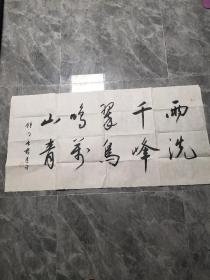 雨洗
千峰
翠鸟
鸣万
山青